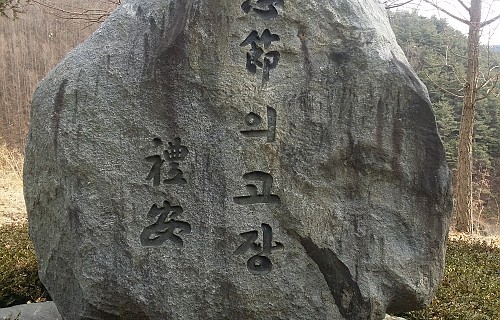 忠節의고장
禮安